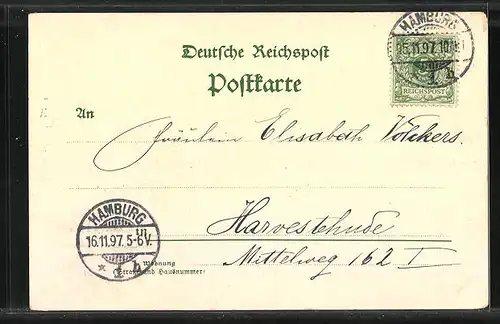 Deutsche Reichspost
Postkarte
HAMBURG
10
REICHSPOST
1 h
An
Fräulein Elisabeth Völckers.
HAMBURG
16.11.97. 5-6V.
1 h
Harvestehude
Wohnung
(Straße und Hausnummer)
Mittelweg 162 I